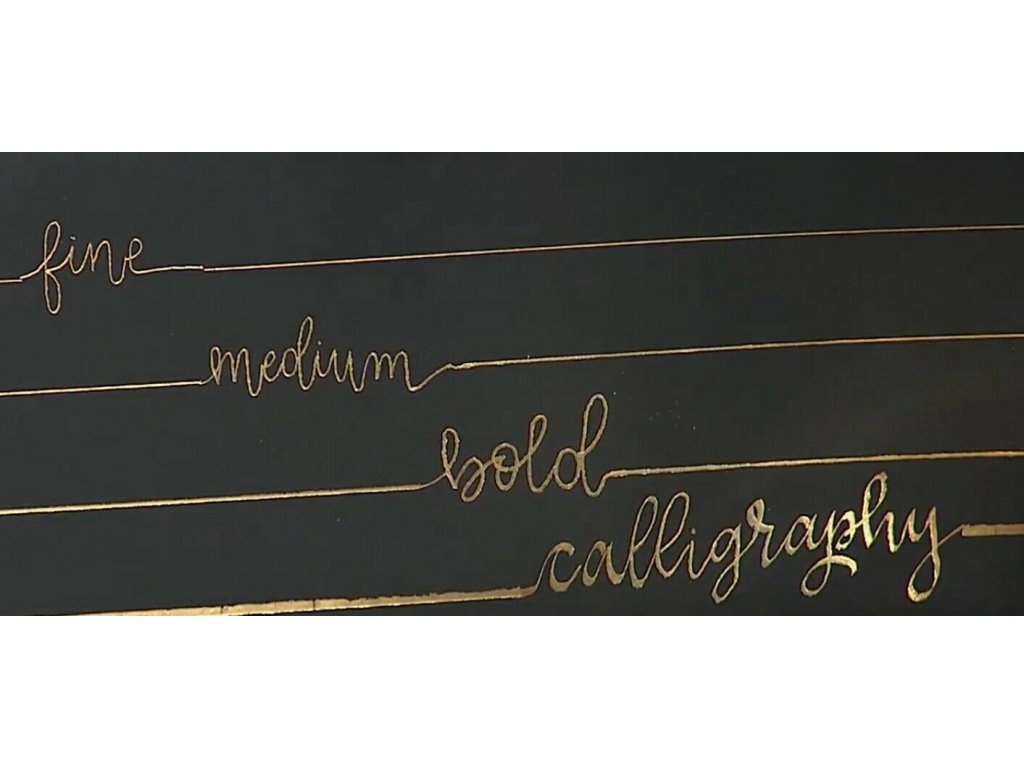 fine
medium
bold
calligraphy